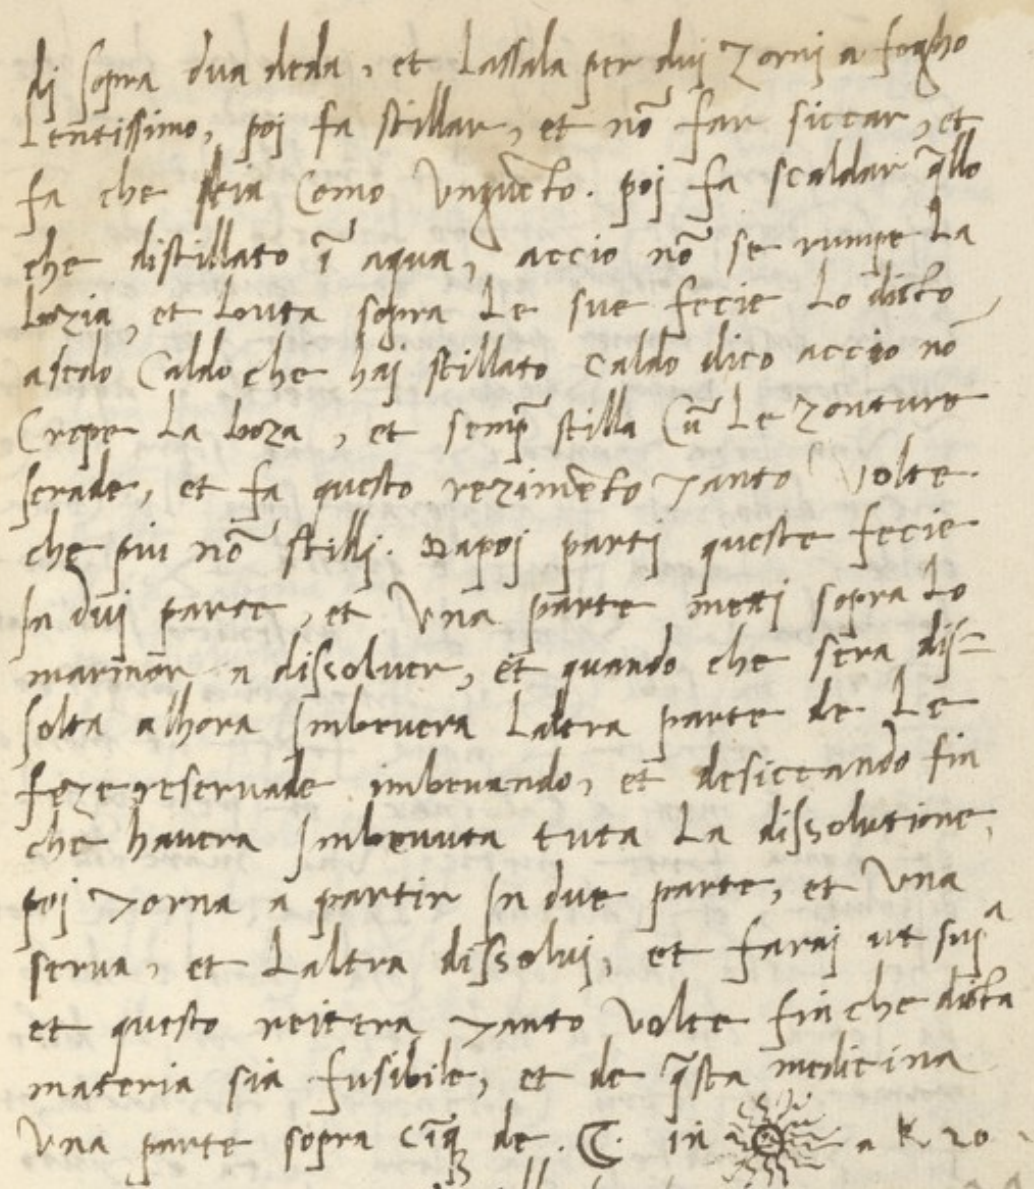 di sopra dua deda, et lassala per dui zorni a fogho
Lentissimo, poi fa stillar, et nō far siccar, et
fa che stia como vnguēto. poi fa scaldar q̄llo
che distillato ī aqua, accio nō se rumpe La
bozia, et buta sopra Le sue fecie Lo dicto
acedo Caldo che hai stillato caldo dico accio nō
Crepe La boza, et semp̄ stilla Cū Le zonture
serade, et fa questo rezimēto tante volte
che piu nō stilli. Dapoi parti queste fecie
In dui parte, et Vna parte metti sopra Lo
marmor a dissolver, et quando che sera dis=
solta alhora Imbevera Laltra parte de Le
feze reservade imbevando, et desiccando fin
che havera Imbevuta tuta La dissolutione,
poi torna a partir In due parte, et Vna
serva, et Laltra dissolvi, et farai ut supᵃ
et questo reitera tante volte fin che dicta
materia sia fusibile, et de q̄sta medicina
Vna parte sopra cīq; de ☾. in ☉ a K 20